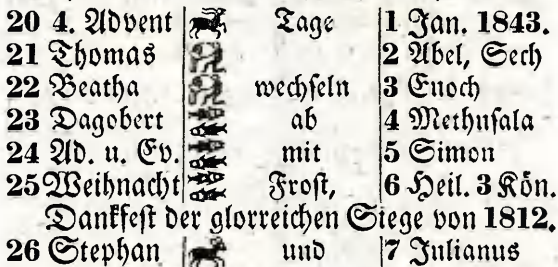 20 4. Advent Tage 1 Jan. 1843.
21 Thomas 2 Abel, Seth
22 Beatha wechseln 3 Enoch
23 Dagobert ab 4 Methusala
24 Ad. u. Ev. mit 5 Simon
25 Weihnacht Frost, 6 Heil. 3 Kön.
Dankfest der glorreichen Siege von 1812.
26 Stephan und 7 Julianus